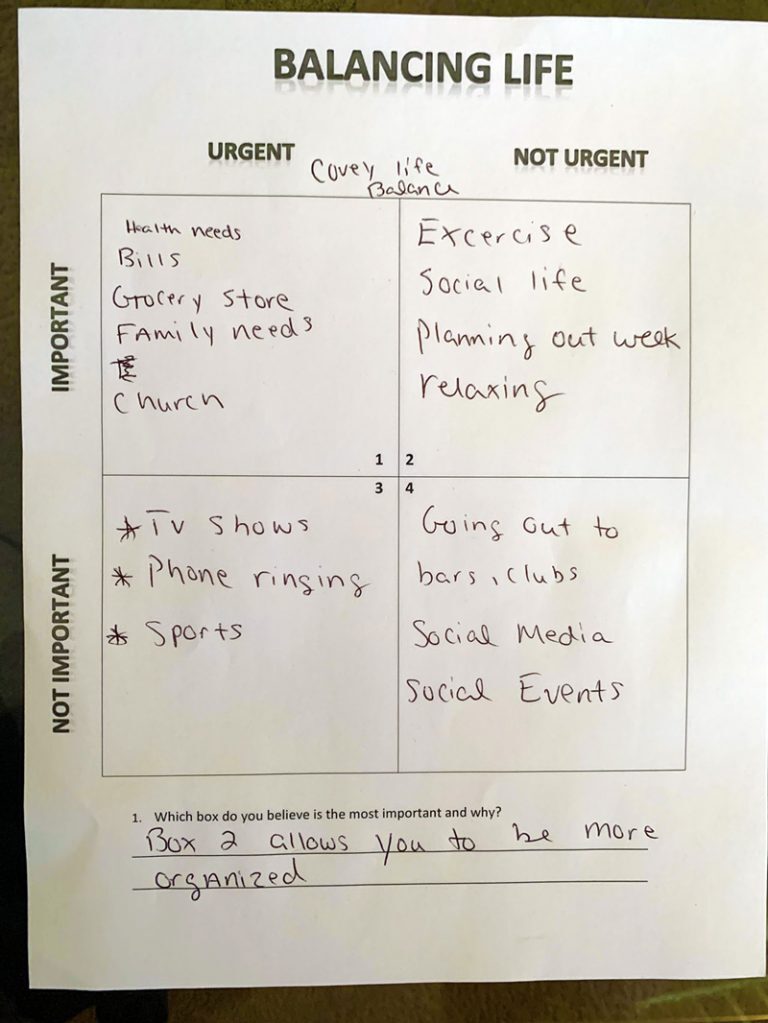 BALANCING LIFE
URGENT
NOT URGENT
Covey life
Balance
IMPORTANT
Health needs
Bills
Grocery Store
FAmily needs
Church
1
Excercise
Social life
Planning out week
relaxing
2
NOT IMPORTANT
3
* Tv Shows
* Phone ringing
* Sports
4
Going out to
bars, Clubs
Social Media
Social Events
1. Which box do you believe is the most important and why?
Box 2 allows you to be more
organized